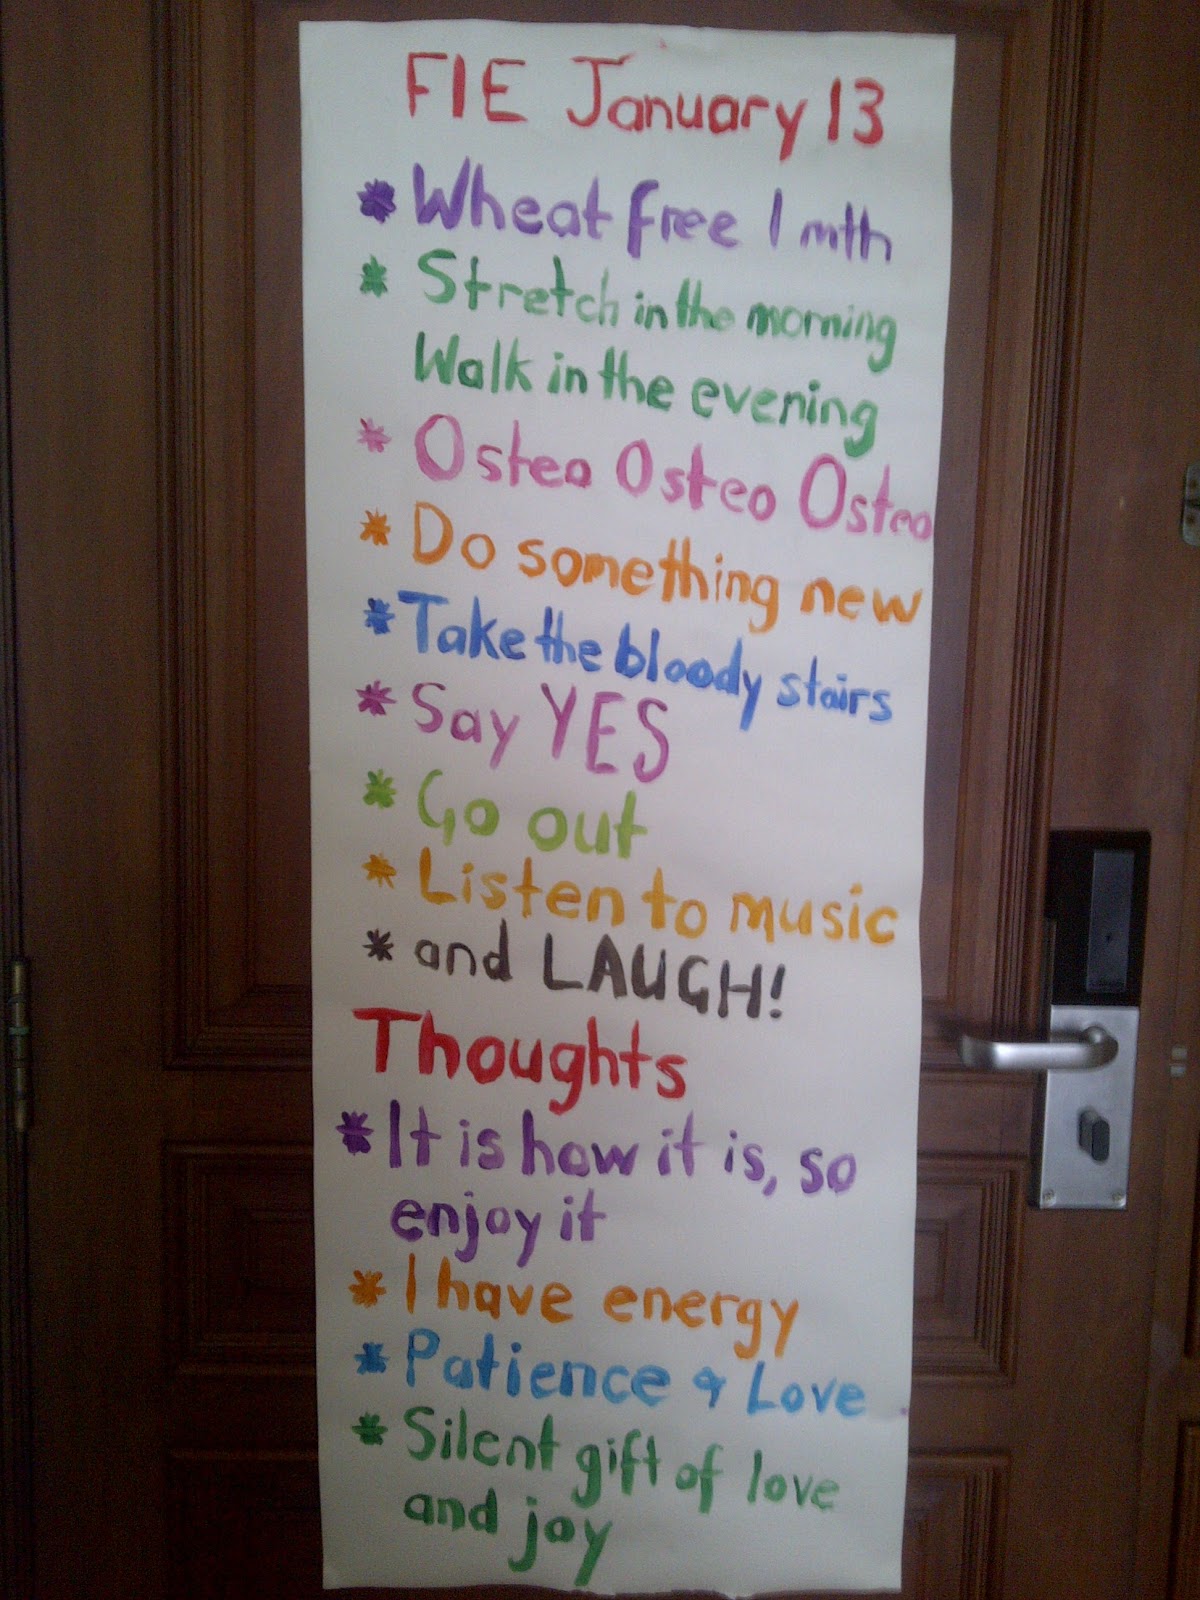 FIE January 13
* Wheat free 1 mth
* Stretch in the morning
Walk in the evening
* Osteo Osteo Osteo
* Do something new
* Take the bloody stairs
* Say YES
* Go out
* Listen to music
* and LAUGH!
Thoughts
* It is how it is, so
enjoy it
* I have energy
* Patience & Love
* Silent gift of love
and joy